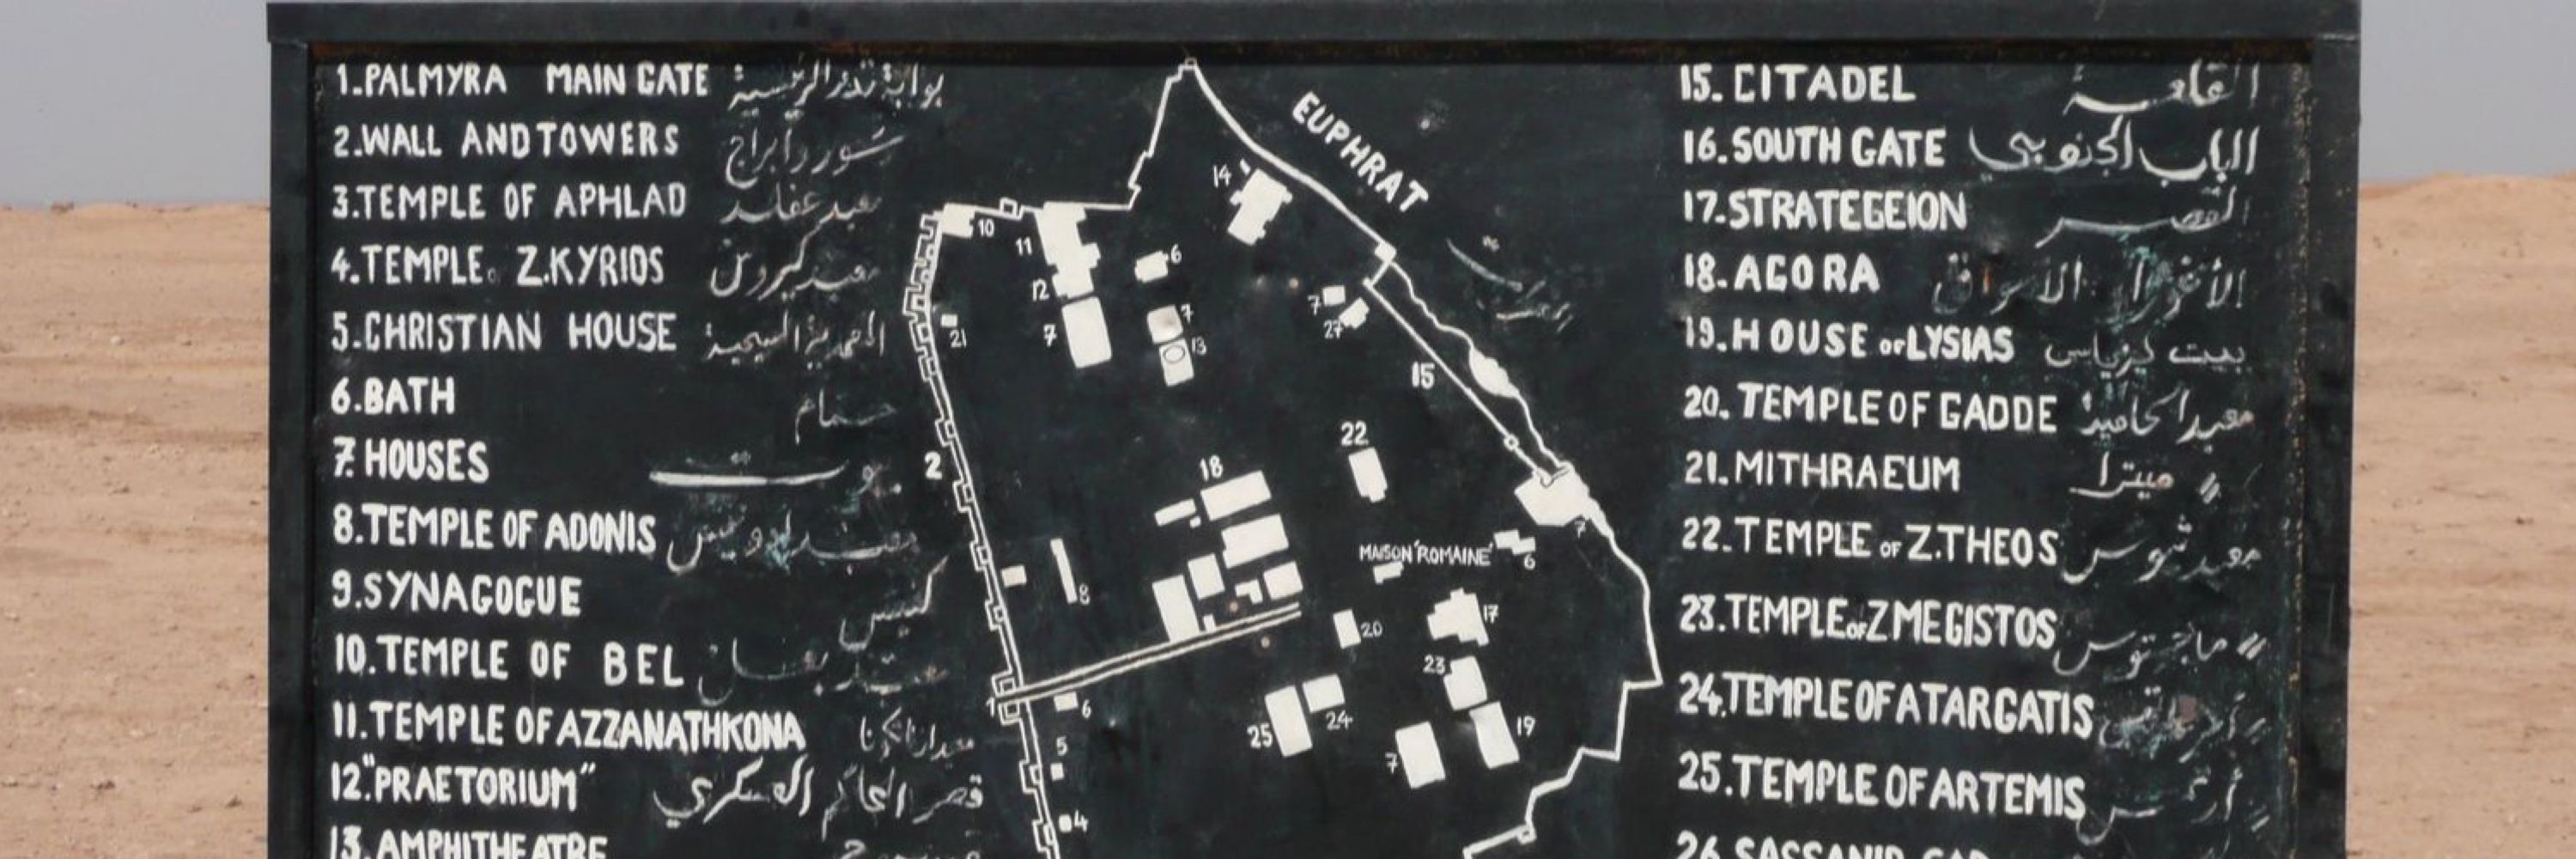 1.PALMYRA MAIN GATE بوابة تدمر الرئيسية
2.WALL AND TOWERS سور وأبراج
3.TEMPLE OF APHLAD معبد عفلد
4.TEMPLE Z.KYRIOS معبد كيروس
5.CHRISTIAN HOUSE المسيحية
6.BATH حمام
7.HOUSES بيوت
8.TEMPLE OF ADONIS معبد
9.SYNAGOGUE كنيس
10.TEMPLE OF BEL معبد
11.TEMPLE OF AZZANATHKONA
12."PRAETORIUM" قصر الحاكم العسكري
13.AMPHITHEATRE
EUPHRAT
14
10
11
6
12
7
7
13
21
7
27
15
2
22
18
MAISON ROMAINE
6
7
8
20
17
23
1
6
25
24
19
7
5
4
15. CITADEL القلعة
16. SOUTH GATE الباب الجنوبي
17. STRATEGEION القصر
18. AGORA الأسواق
19. HOUSE OF LYSIAS بيت ليزياس
20. TEMPLE OF GADDE معبد الحامية
21. MITHRAEUM " ميترا
22. TEMPLE OF Z.THEOS معبد ثيوس
23. TEMPLE OF Z MEGISTOS "
24. TEMPLE OF ATARGATIS "
25. TEMPLE OF ARTEMIS "
26. SASSANID